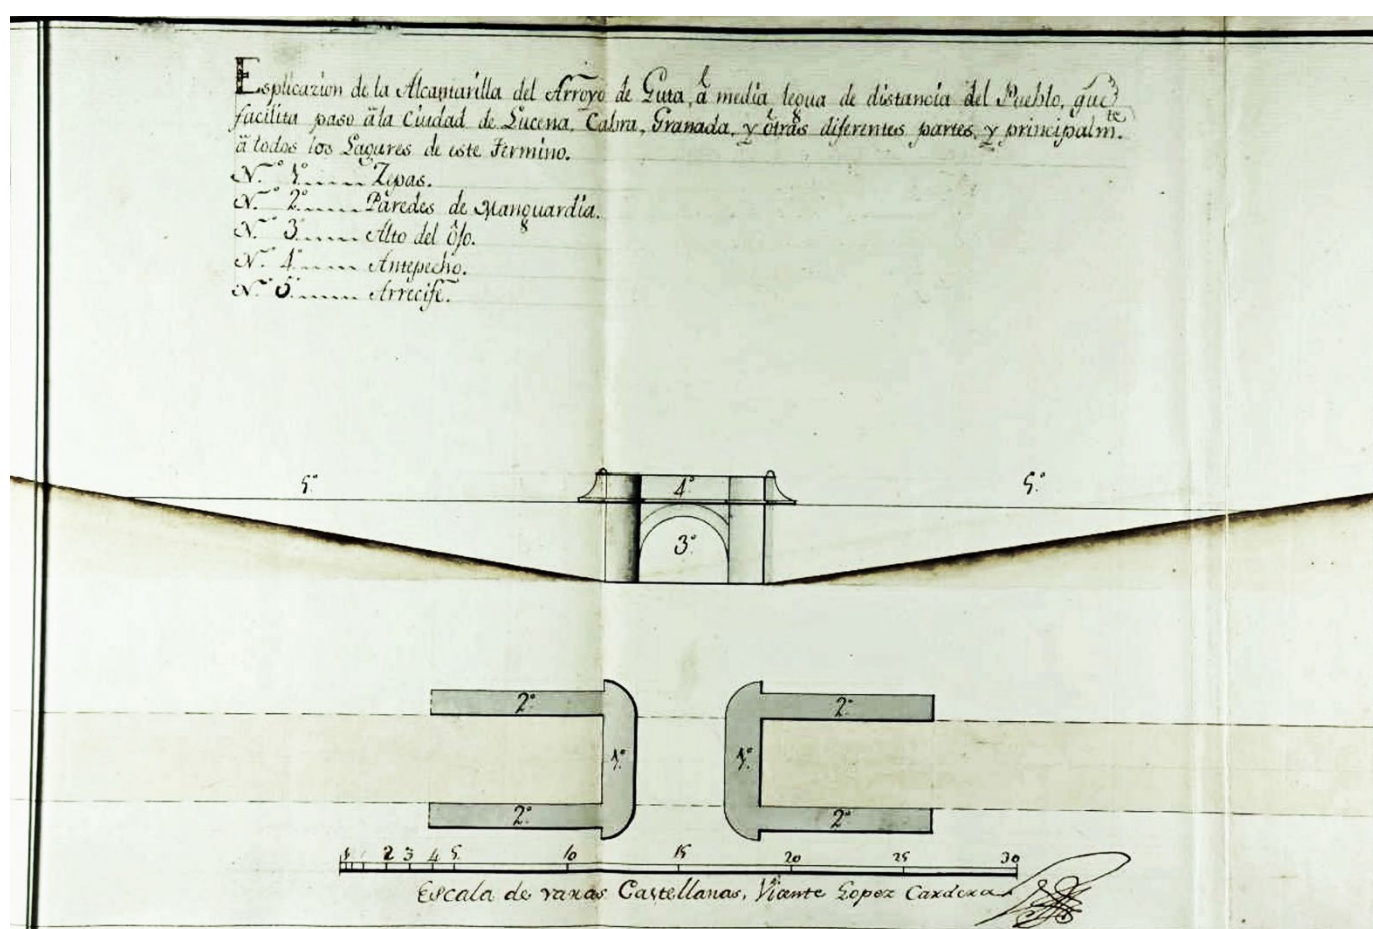 Esplicazion de la Alcantarilla del Arroyo de Guta, á media legua de distancia del Pueblo, que
facilita paso ä la Ciudad de Lucena, Cabra, Granada, y otras diferentes partes, y principalm.te
ä todos los Lagares de este Termino.
N.º 1º...... Zepas.
N.º 2º...... Paredes de Manguardia.
N.º 3º...... Alto del Ojo.
N.º 4º...... Antepecho.
N.º 5º...... Arrecife.
5º 4º 5º
3º
2º 2º
1º 1º
2º 2º
1 2 3 4 5 10 15 20 25 30
Escala de varas Castellanas, Vicente Lopez Cardera